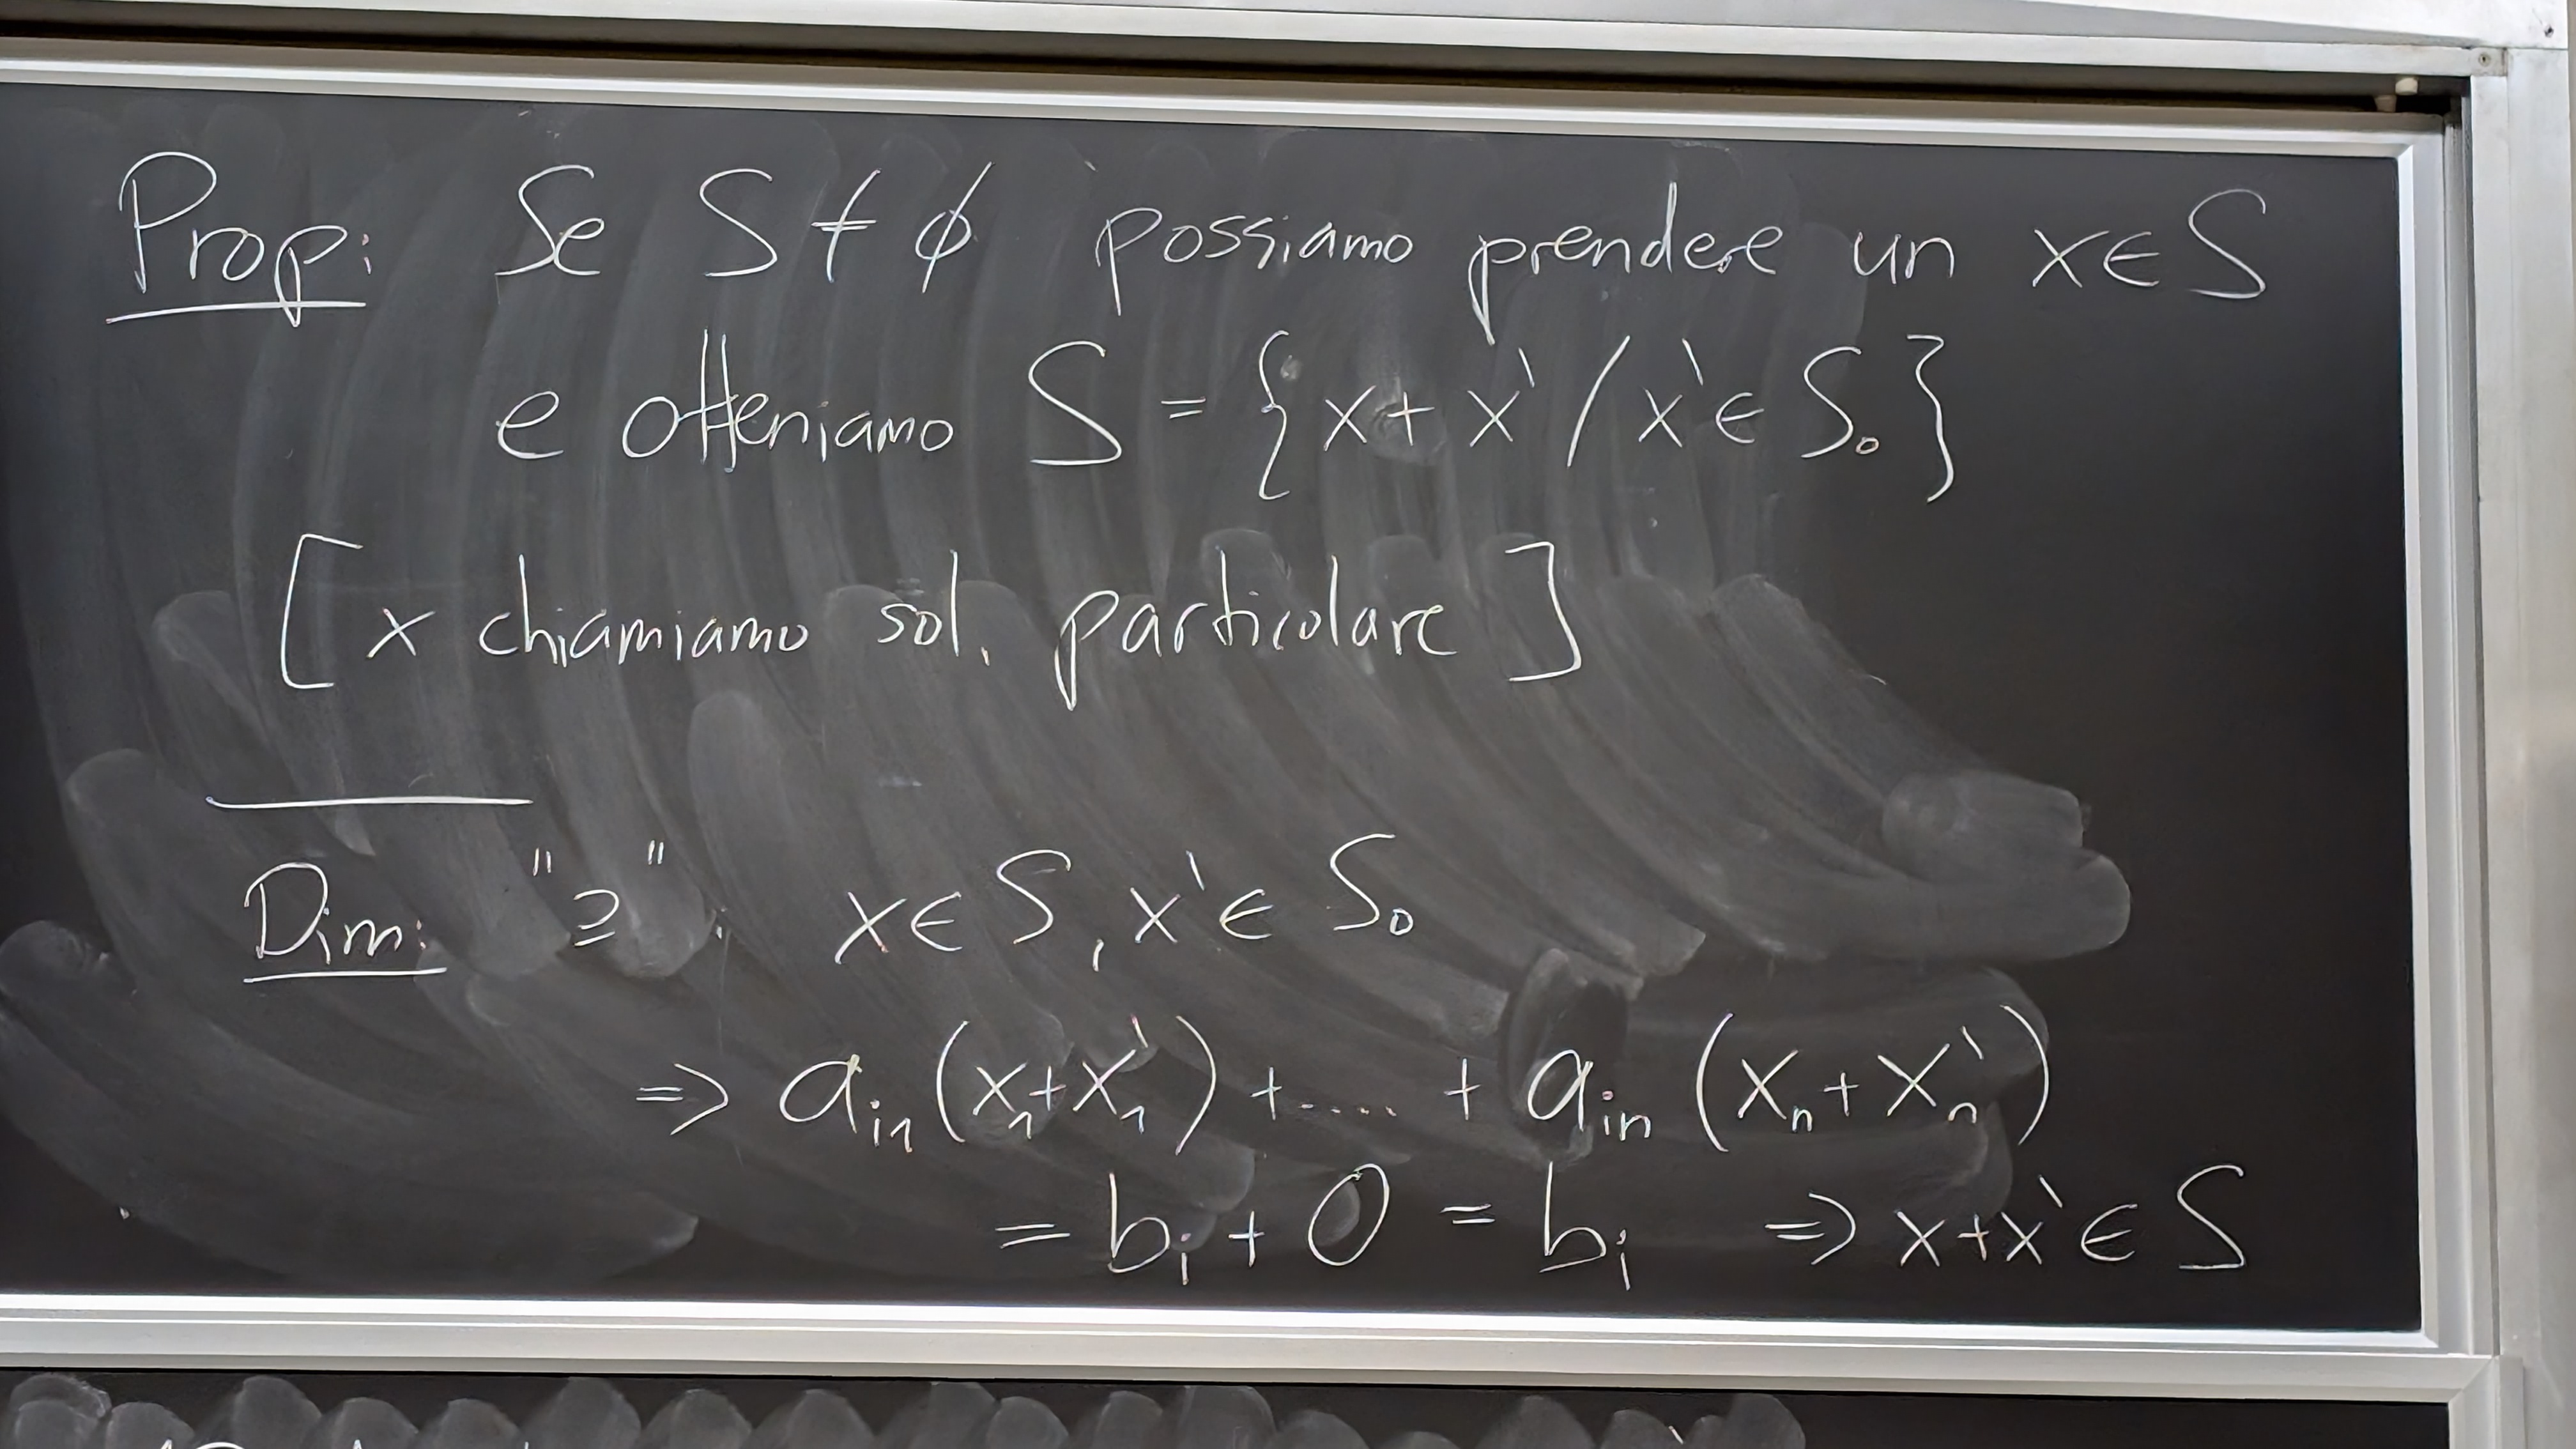 Prop: Se S ≠ ∅ possiamo prendere un x ∈ S
e otteniamo S = { x + x` / x` ∈ S₀ }
[ x chiamiamo sol. particolare ]
Dim: "⊇". x ∈ S, x` ∈ S₀
=> aᵢ₁ (x₁ + x`₁) + ..... + aᵢₙ (xₙ + x`ₙ)
= bᵢ + 0 = bᵢ => x + x` ∈ S